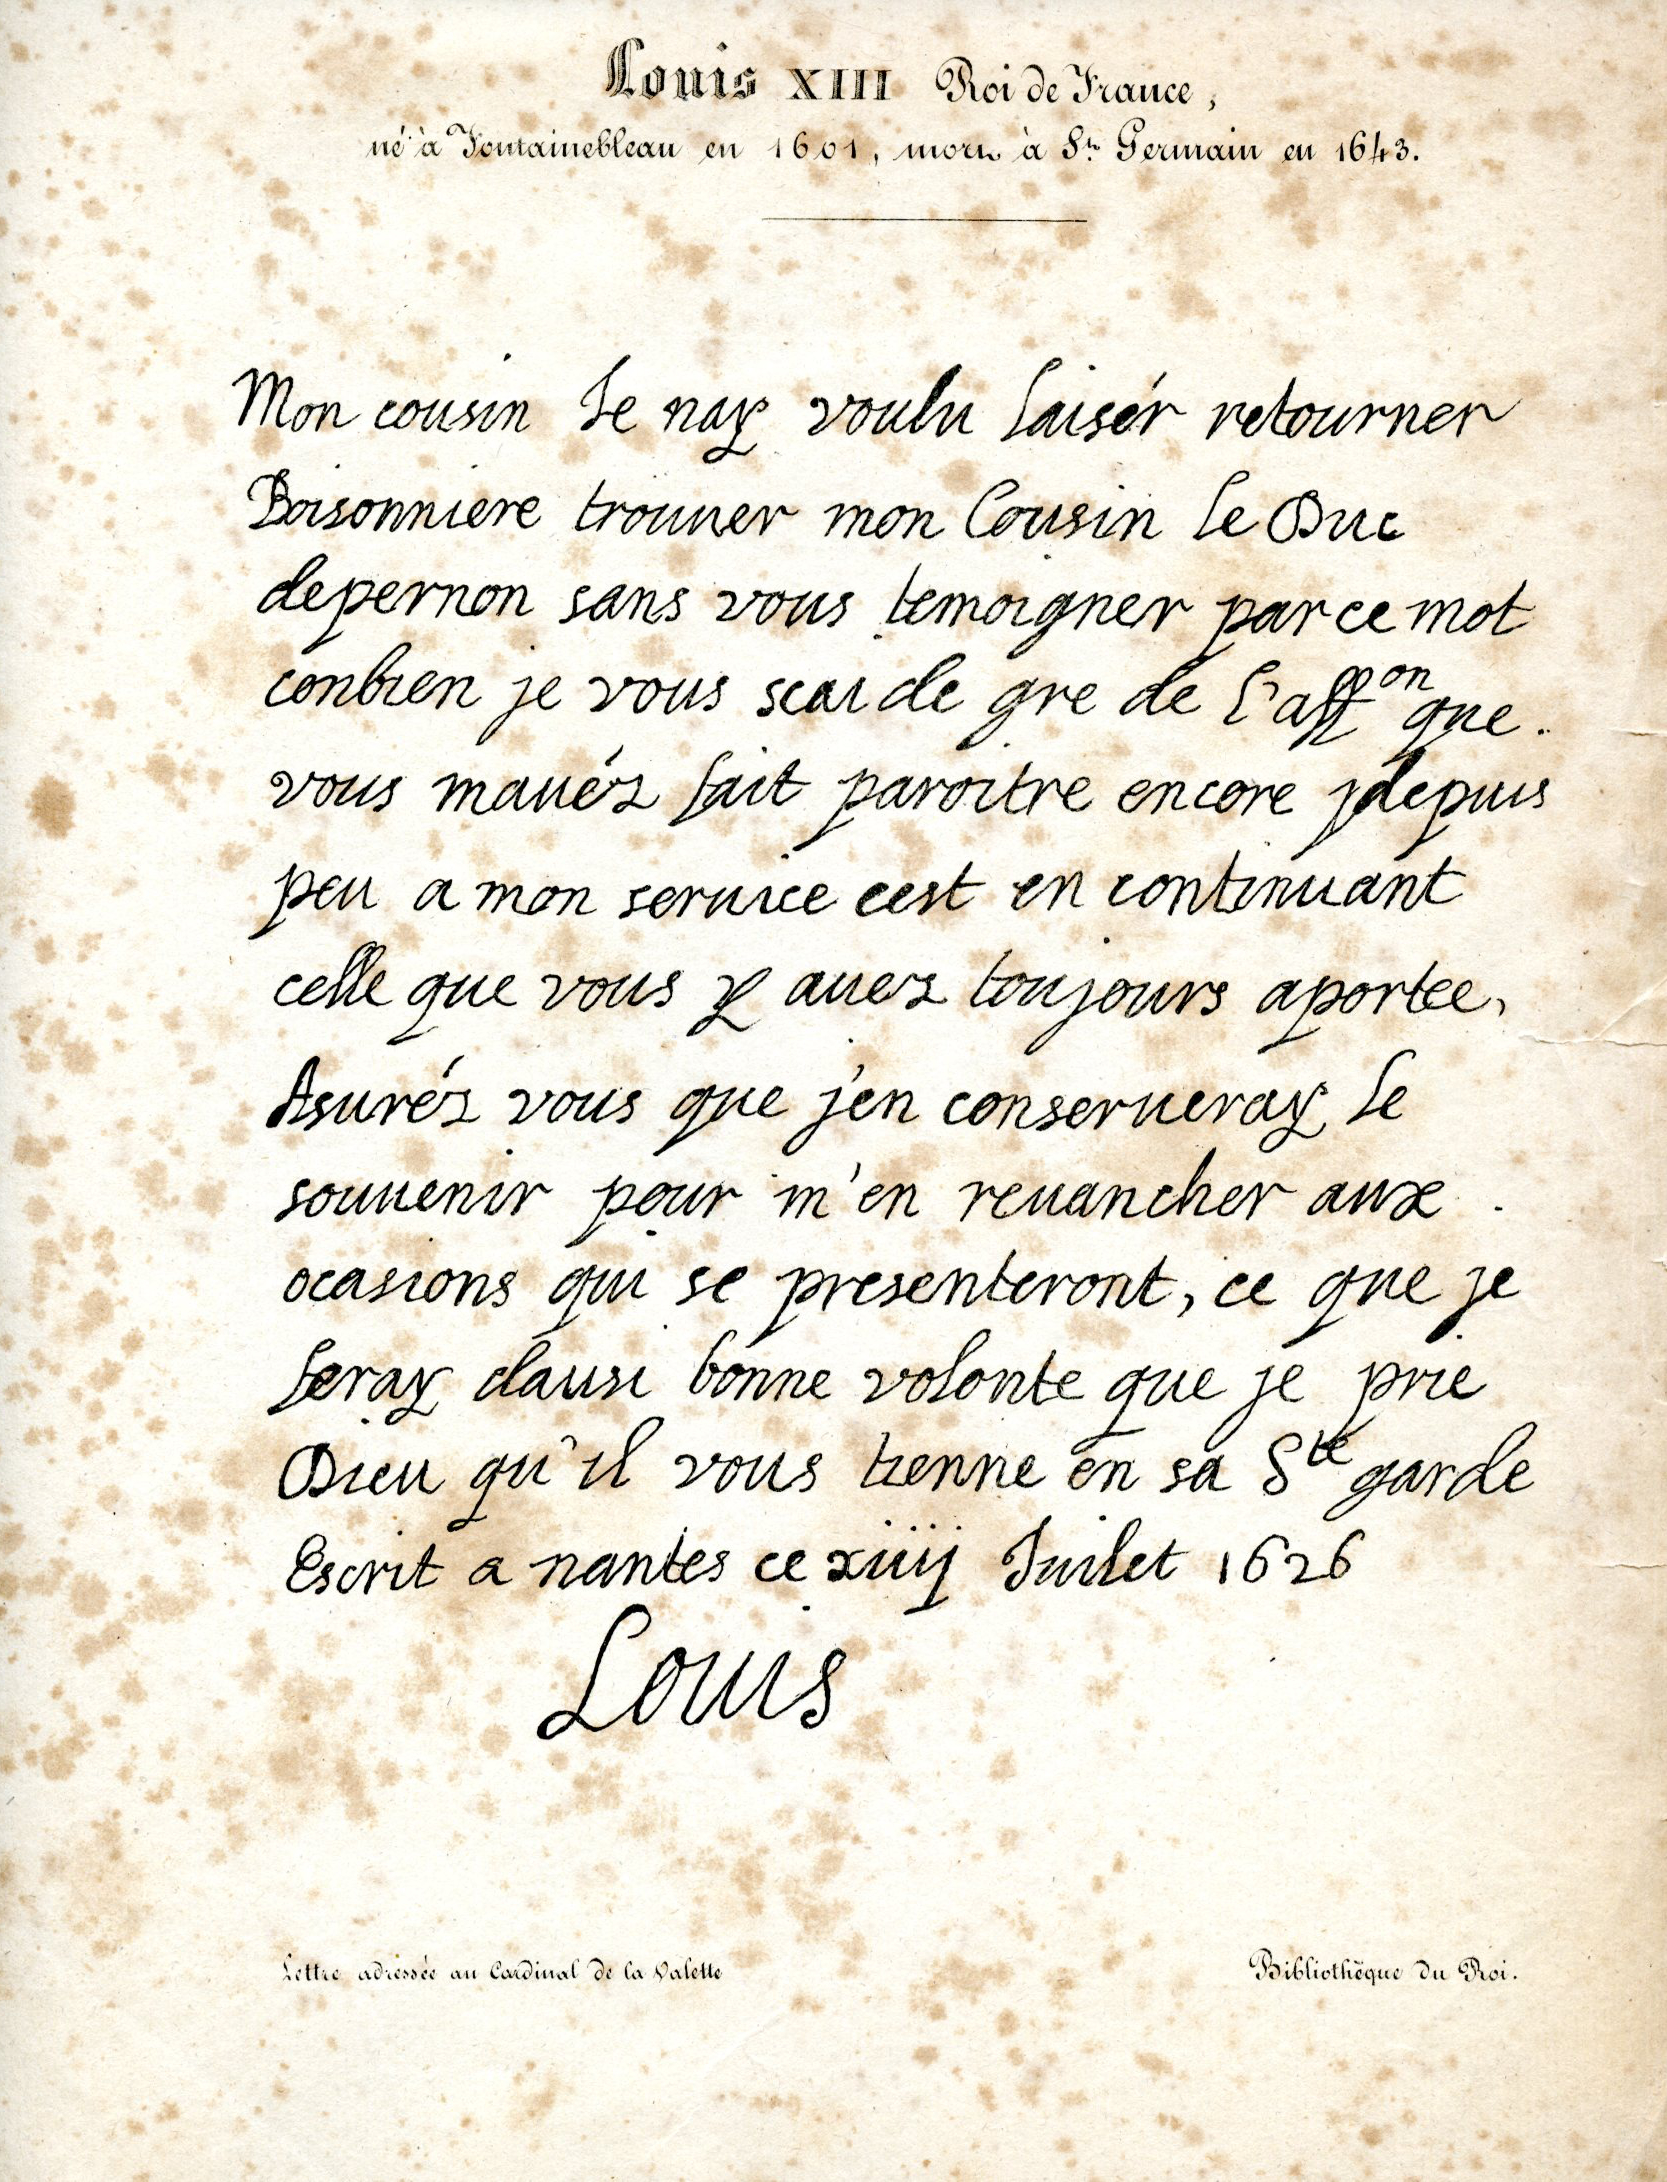 Louis XIII Roi de France,
né à Fontainebleau en 1601, mort à St. Germain en 1643.
Mon cousin Je nay voulu laisér retourner
Boisonniere trouuer mon Cousin le Duc
depernon sans vous temoigner par ce mot
conbien je vous scai de gre de l'affon que
vous maués fait paroitre encore depuis
peu a mon seruice cest en continuant
celle que vous y aues toujours aportee,
Asurés vous que j'en conserueray le
souuenir pour m'en reuancher aux
ocasions qui se presenteront, ce que je
feray dausi bonne volonte que je prie
Dieu qu'il vous tienne en sa Ste garde
Escrit a nantes ce xiiij Juilet 1626
Louis
Lettre adressée au Cardinal de la Valette
Bibliothèque du Roi.